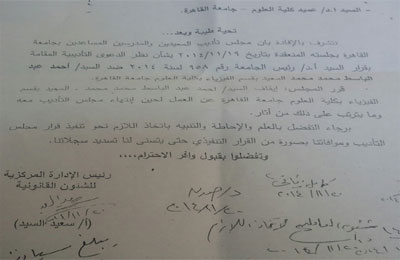 السيد ا.د/ عميد كلية العلوم - جامعة القاهرة.
تحية طيبة وبعد...
نتشرف بالإفادة بأن مجلس تأديب المعيدين والمدرسين المساعدين بجامعة
القاهرة بجلسته المنعقدة بتاريخ ٢٠١٤/١١/١٩ بشأن نظر الدعوى التأديبية المقامة
بقرار السيد أ.د/ رئيس الجامعة رقم لسنة ٢٠١٤ ضد السيد/ أحمد عبد
الباسط محمد محمد المعيد بقسم الفيزياء بكلية العلوم جامعة القاهرة.
قرر المجلس: إيقاف السيد/ أحمد عبد الباسط محمد محمد - المعيد بقسم
الفيزياء بكلية العلوم جامعة القاهرة عن العمل لحين إنتهاء مجلس التأديب معه
وما يترتب على ذلك من آثار.
برجاء التفضل بالعلم والإحاطة والتنبيه باتخاذ اللازم نحو تنفيذ قرار مجلس
التأديب وموافاتنا بصورة من القرار التنفيذي حتى يتسنى لنا تسديد سجلاتنا.
وتفضلوا بقبول وافر الاحترام....
رئيس الإدارة المركزية
للشئون القانونية
(أ/ سعيد السيد)